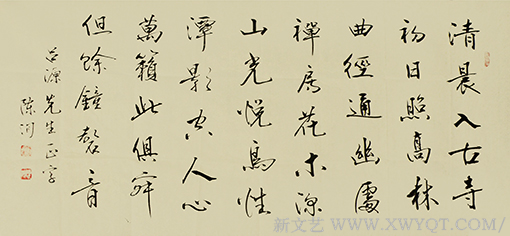 清晨入古寺
初日照高林
曲徑通幽處
禪房花木深
山光悅鳥性
潭影空人心
萬籟此俱寂
但餘鐘磬音
先生正字
新文艺 WWW.XWYQT.COM/